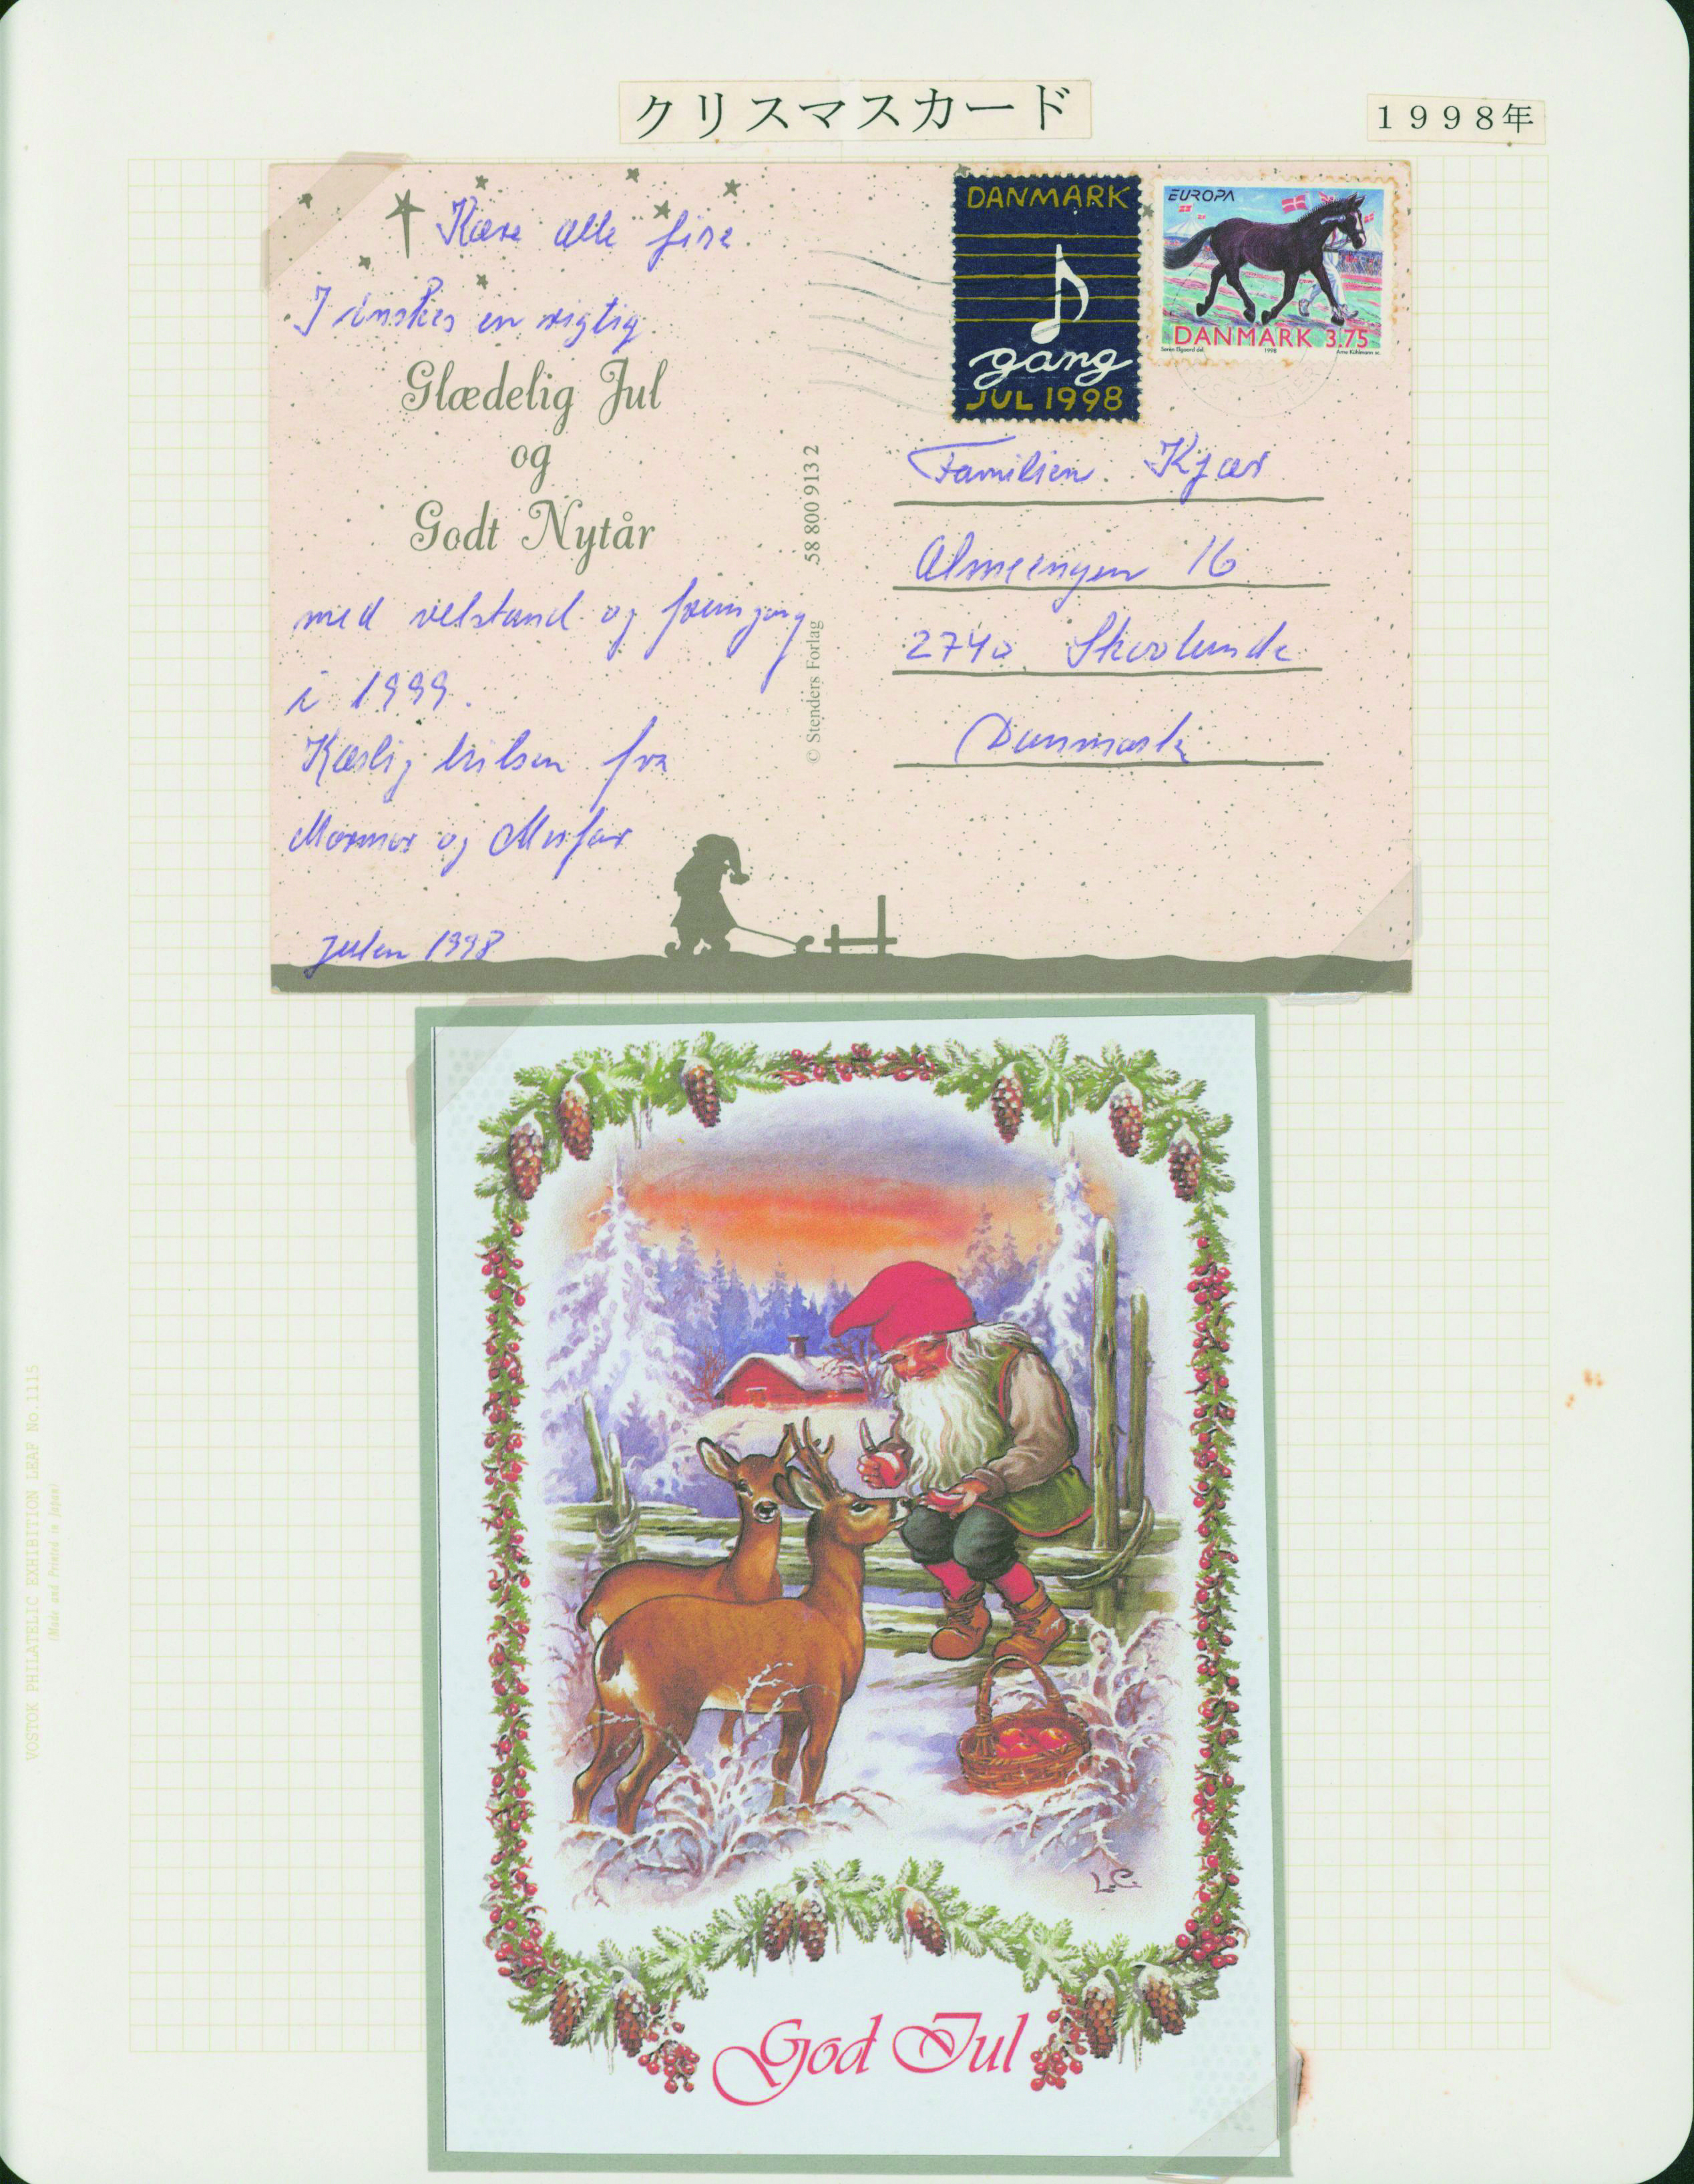 クリスマスカード
1998年
Kære alle fire.
I ønskes en rigtig
Glædelig Jul
og
Godt Nytår
med velstand og fremgang
i 1999.
Kærlig hilsen fra
Mormor og Morfar
Julen 1998
© Stenders Forlag 58 800 913 2
DANMARK
gang
JUL 1998
EUROPA
DANMARK 3.75
1998
Familien Kjær
16
2740 Skovlunde
Danmark
L.C.
God Jul
VOSTOK PHILATELIC EXHIBITION LEAF No.1115
(Made and Printed in Japan)